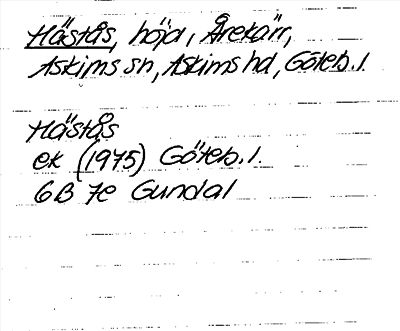 Hästås, höjd, Årekärr,
Askims sn, Askims hd, Göteb. l.
Hästås
ek (1975) Göteb. l.
6B 7e Gundal